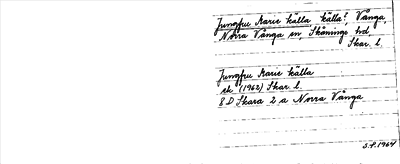 Jungfru Marie källa, källa?, Vånga,
Norra Vånga sn, Skånings hd,
Skar. l.
Jungfru Marie källa
sk (1962) Skar. l.
8 D Skara 2 a Norra Vånga
S.F. 1964